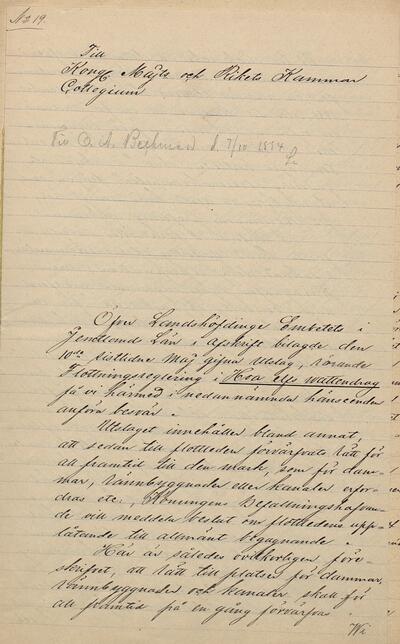 No 19.
Till
Kongl. Majts och Rikets Kammar
Collegium
Till O. A. Beckman d. 7/10 1884
Öfver Landshöfdinge Embetets i
Jemtlands Län i afskrift bilagde den
10de sistlidne Maj gifna Utslag, rörande
Flottningsreglering i Hså elfs wattendrag
få vi härmed i nedannämnda hänseenden
anföra besvär.
Utslaget innehåller bland annat,
att sedan till flottleden förvärfvats rätt för
all framtid till den mark, som för dam-
mar, rännbyggnader eller kanaler erfor-
dras etc:, Konungens Befallningshafvan-
de vill meddela beslut om flottledens upp-
låtande till allmänt begagnande.
Här är således ovilkorligen före-
skrifvet, att rätt till platsen för dammar,
rännbyggnader och kanaler skall för
all framtid på en gång förvärfvas.
Wi